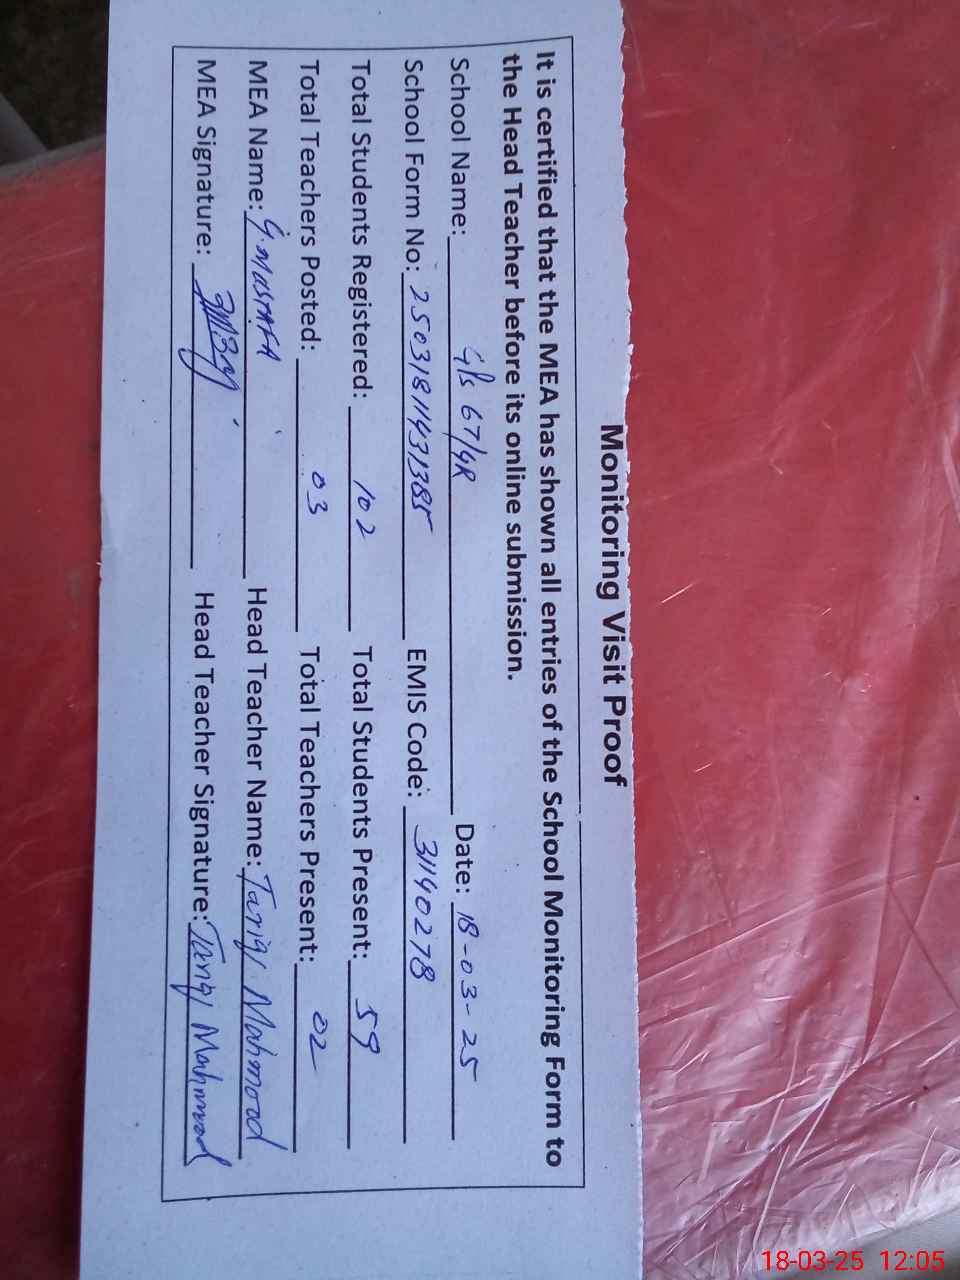 Monitoring Visit Proof
It is certified that the MEA has shown all entries of the School Monitoring Form to
the Head Teacher before its online submission.
School Name: G/s 67/4R Date: 18-03-25
School Form No: 25031811431385 EMIS Code: 31140278
Total Students Registered: 102 Total Students Present: 59
Total Teachers Posted: 03 Total Teachers Present: 02
MEA Name: G. MUSTAFA Head Teacher Name: Tariq Mahmood
MEA Signature: Head Teacher Signature: Tariq Mahmood
18-03-25 12:05